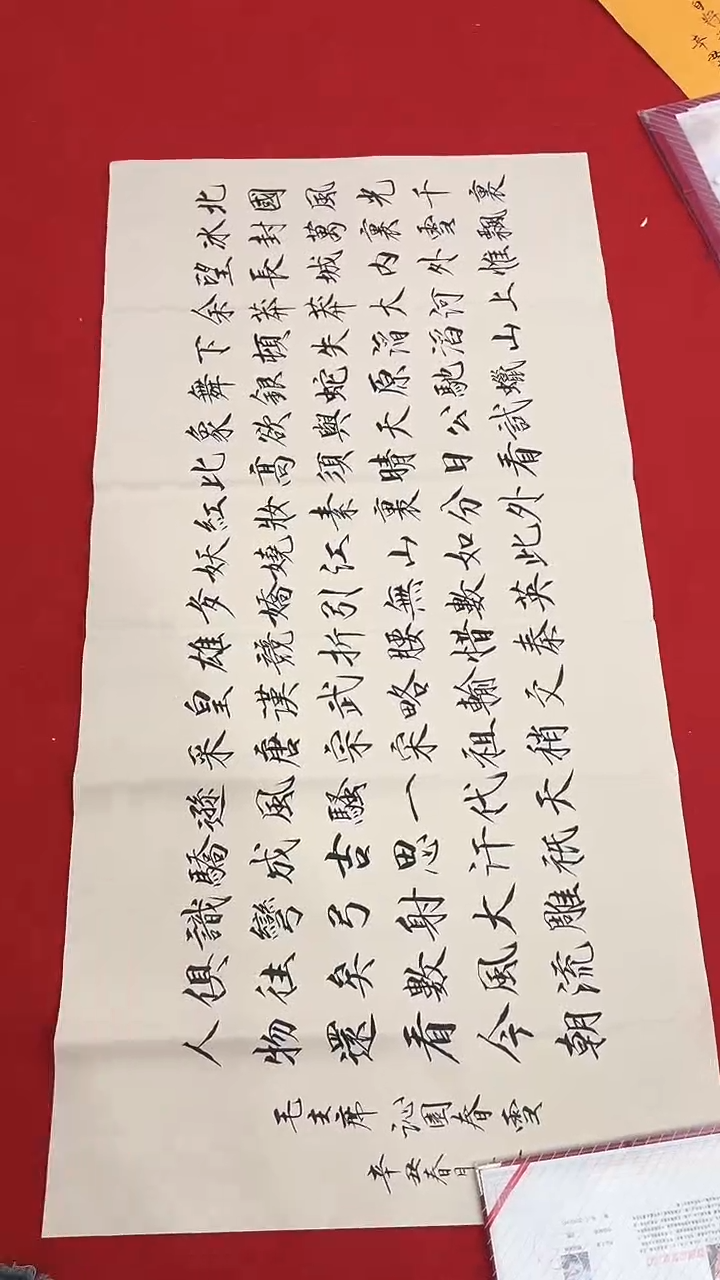 北國風光千裏
冰封萬裏雪飄
望長城内外惟
余莽莽大河上
下頓失滔滔山
舞銀蛇原馳蠟
象欲與天公試
比高須晴日看
紅妝素裹分外
妖嬈江山如此
多嬌引無數英
雄競折腰惜秦
皇漢武略輸文
采唐宗宋祖稍
遜風騷一代天
驕成吉思汗祇
識彎弓射大雕
俱往矣數風流
人物還看今朝
毛主席沁園春雪
辛丑春日